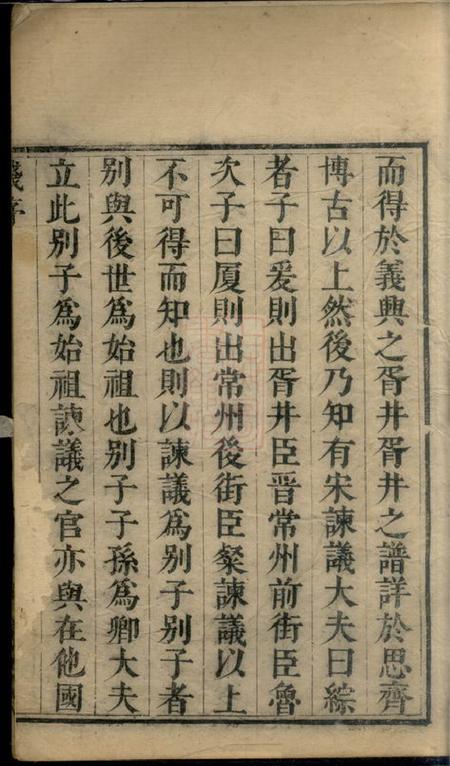 而得於義興之胥井胥井之譜詳於思齊
博古以上然後乃知有宋諫議大夫曰綜
者子曰爰則出胥井臣晋常州前街臣魯
次子曰厦則出常州後街臣粲諫議以上
不可得而知也則以諫議為别子别子者
别與後世為始祖也别子子孫為卿大夫
立此别子為始祖諫議之官亦與在他國